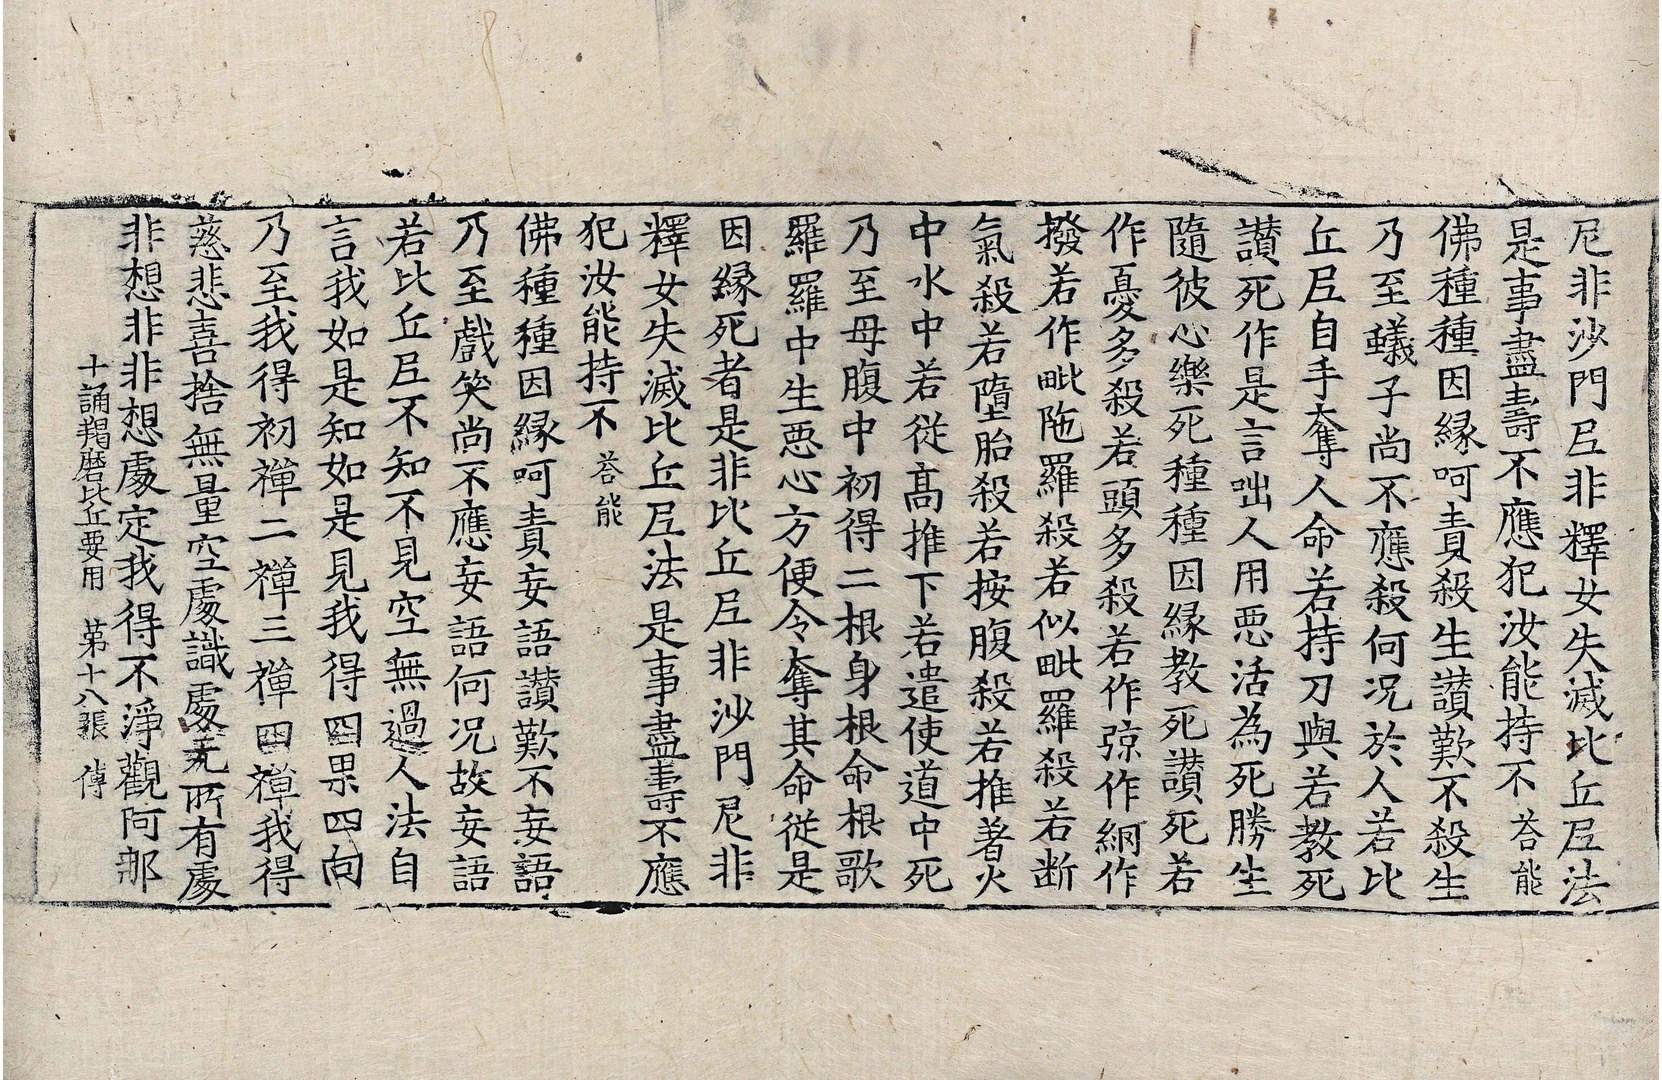 尼非沙門尼非釋女失滅比丘尼法
是事盡壽不應犯汝能持不 荅能
佛種種因緣呵責殺生讃歎不殺生
乃至蟻子尚不應殺何况於人若比
丘尼自手奪人命若持刀與若教死
讃死作是言咄人用惡活為死勝生
隨彼心樂死種種因緣教死讃死若
作憂多殺若頭多殺若作弶作網作
撥若作毗陁羅殺若似毗羅殺若断
氣殺若墮胎殺若按腹殺若推著火
中水中若從髙推下若遣使道中死
乃至母腹中初得二根身根命根歌
羅羅中生惡心方便令奪其命從是
因緣死者是非比丘尼非沙門尼非
釋女失滅比丘尼法是事盡壽不應
犯汝能持不 荅能
佛種種因緣呵責妄語讃歎不妄語
乃至戲笑尚不應妄語何况故妄語
若比丘尼不知不見空無過人法自
言我如是知如是見我得四果四向
乃至我得初禪二禪三禪四禪我得
慈悲喜捨無量空處識處无所有處
非想非非想處定我得不淨觀阿那
十誦羯磨比丘要用 第十八張 傳